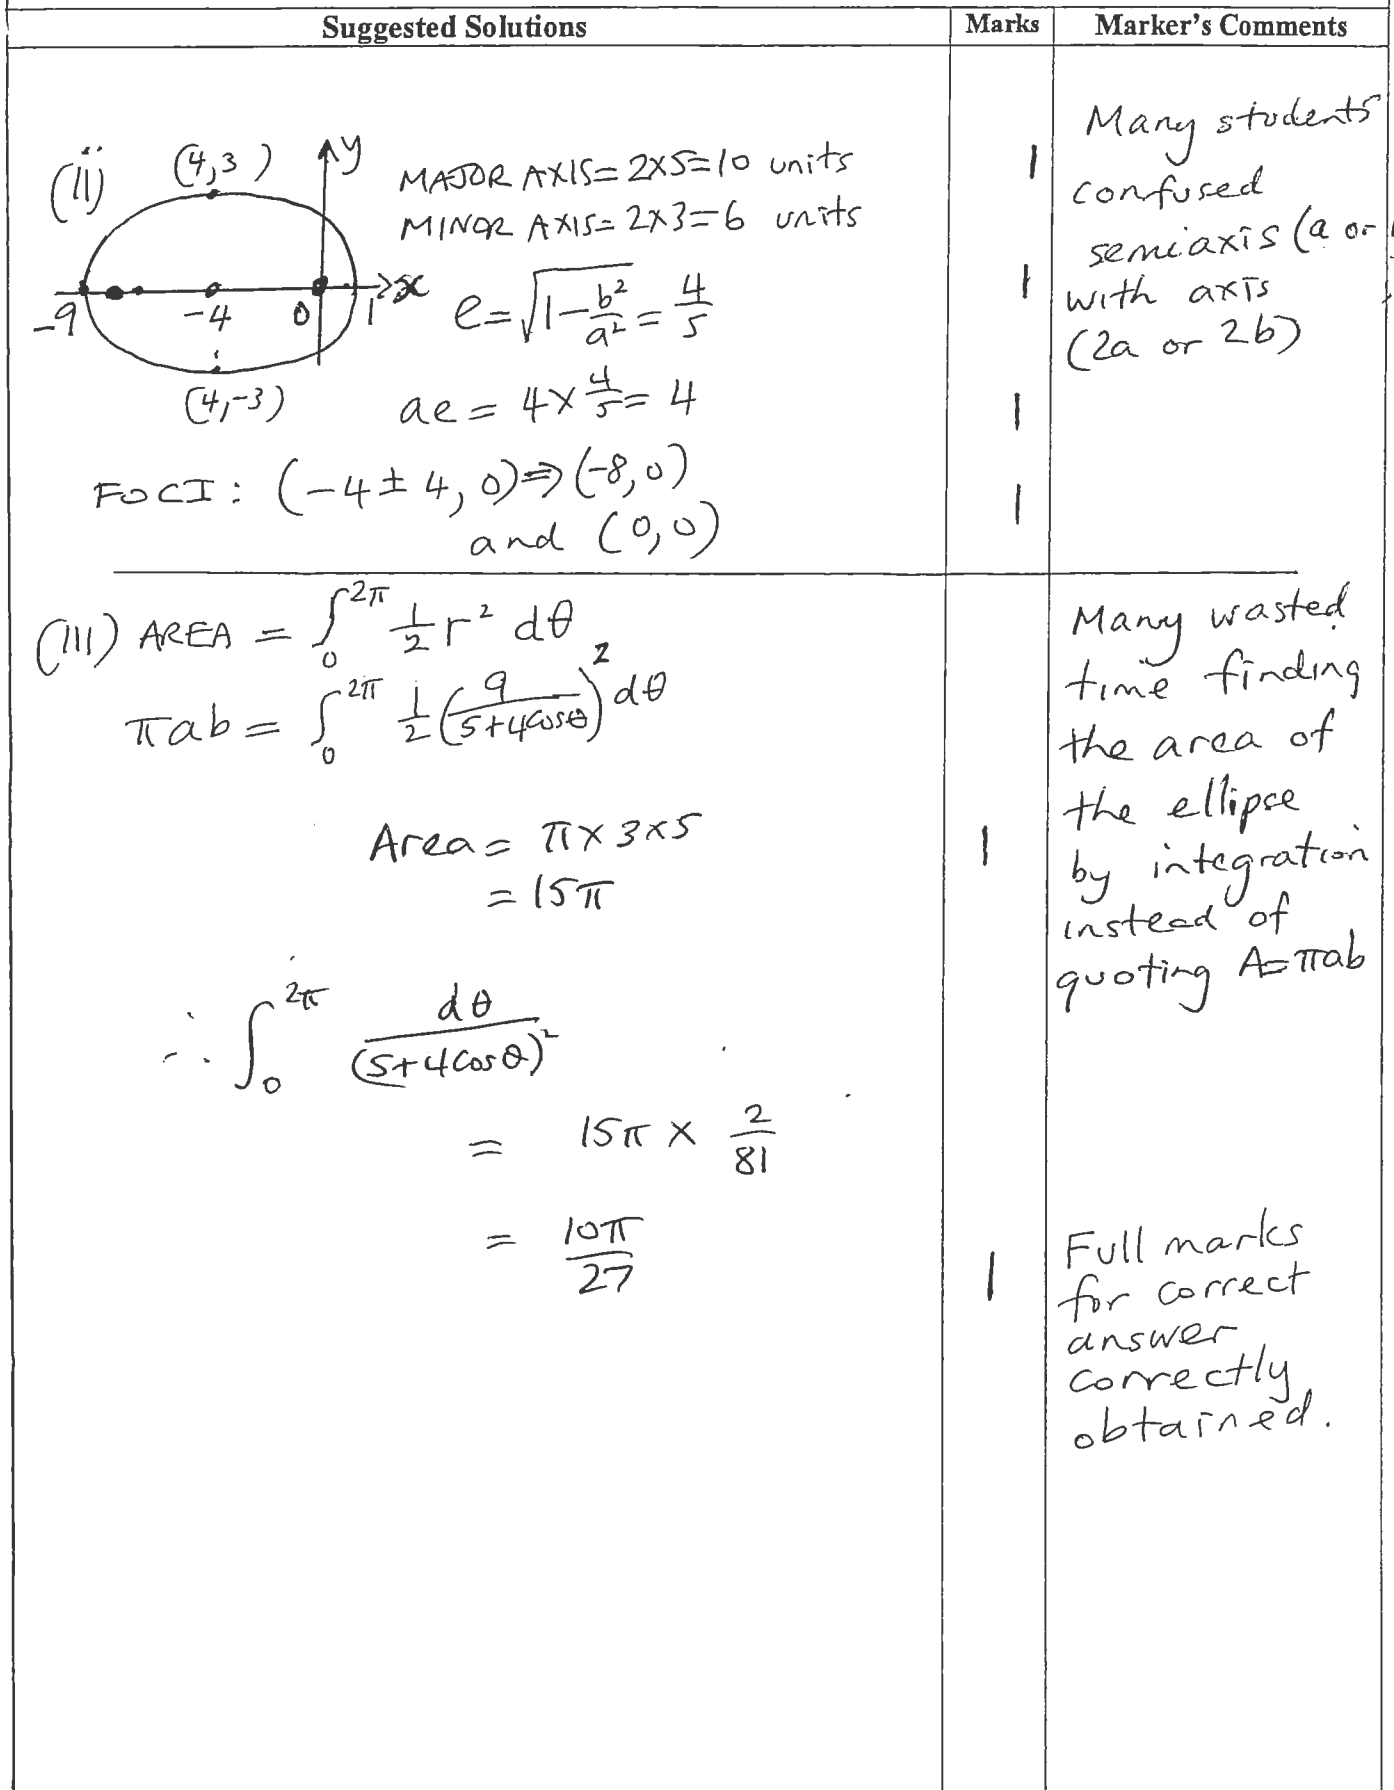 Suggested Solutions
Marks
Marker's Comments
(ii)
(4,3)
y
MAJOR AXIS = 2x5=10 units
1
MINOR AXIS = 2x3=6 units
-9
-4
0
1
x
e = √(1 - b²/a²) = 4/5
1
(4,-3)
ae = 4 × 4/5 = 4
1
FOCI: (-4 ± 4, 0) ⇒ (-8,0)
and (0,0)
1
Many students
confused
semiaxis (a or
with axis
(2a or 2b)
(III) AREA = ∫₀^2π 1/2 r² dθ
πab = ∫₀^2π 1/2 (9/(5+4cosθ))² dθ
Area = π × 3 × 5
1
= 15π
∴ ∫₀^2π dθ/(5+4cosθ)²
= 15π × 2/81
= 10π/27
1
Many wasted
time finding
the area of
the ellipse
by integration
instead of
quoting A=πab
Full marks
for correct
answer
correctly
obtained.